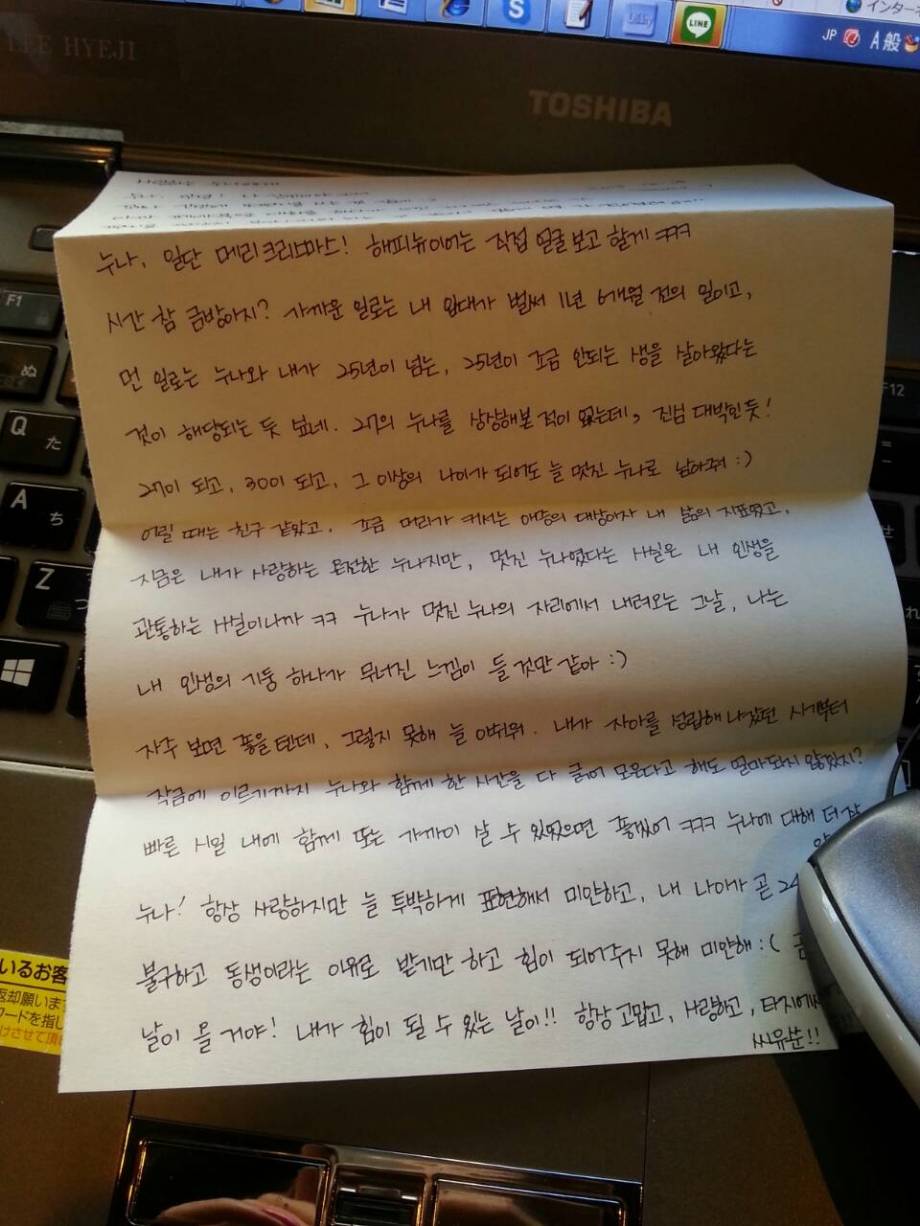 LEE HYEJI
LINE
インターネ
JP A 般
TOSHIBA
누나, 일단 메리크리스마스! 해피뉴이어는 직접 얼굴 보고 할게 ㅋㅋㅋ
시간 참 금방이지? 가까운 일로는 내 입대가 벌써 1년 6개월 전의 일이고,
먼 일로는 누나와 내가 25년이 넘는, 25년이 조금 안되는 생을 살아왔다는
것이 해당되는 듯 보네. 27의 누나를 상상해본 적이 없는데, 진심 대박인듯!
27이 되고, 30이 되고, 그 이상의 나이가 되어도 늘 멋진 누나로 남아줘 :)
어릴 때는 친구 같았고, 조금 머리가 커서는 애증의 대상이자 내 삶의 지표였고,
지금은 내가 사랑하는 온전한 누나지만, 멋진 누나였다는 사실은 내 인생을
관통하는 사실이니까 ㅋㅋ 누나가 멋진 누나의 자리에서 내려오는 그날, 나는
내 인생의 기둥 하나가 무너진 느낌이 들 것만 같아 :)
자주 보면 좋을텐데, 그렇지 못해 늘 아쉬워. 내가 자아를 성립해나갔던 시기부터
작금에 이르기까지 누나와 함께 한 시간을 다 긁어 모은다고 해도 얼마되지 않겠지?
빠른 시일 내에 함께 또는 가까이 살 수 있었으면 좋겠어 ㅋㅋㅋ 누나에 대해 더 잘
누나! 항상 사랑하지만 늘 투박하게 표현해서 미안하고, 내 나이가 곧 24
불구하고 동생이라는 이유로 받기만 하고 힘이 되어주지 못해 미안해 :(
날이 올 거야! 내가 힘이 될 수 있는 날이!! 항상 고맙고, 사랑하고, 타지에서
씨유쑨!!
F1
F12
ぬ
Q た
A ち
Z
いるお客
返却願いま